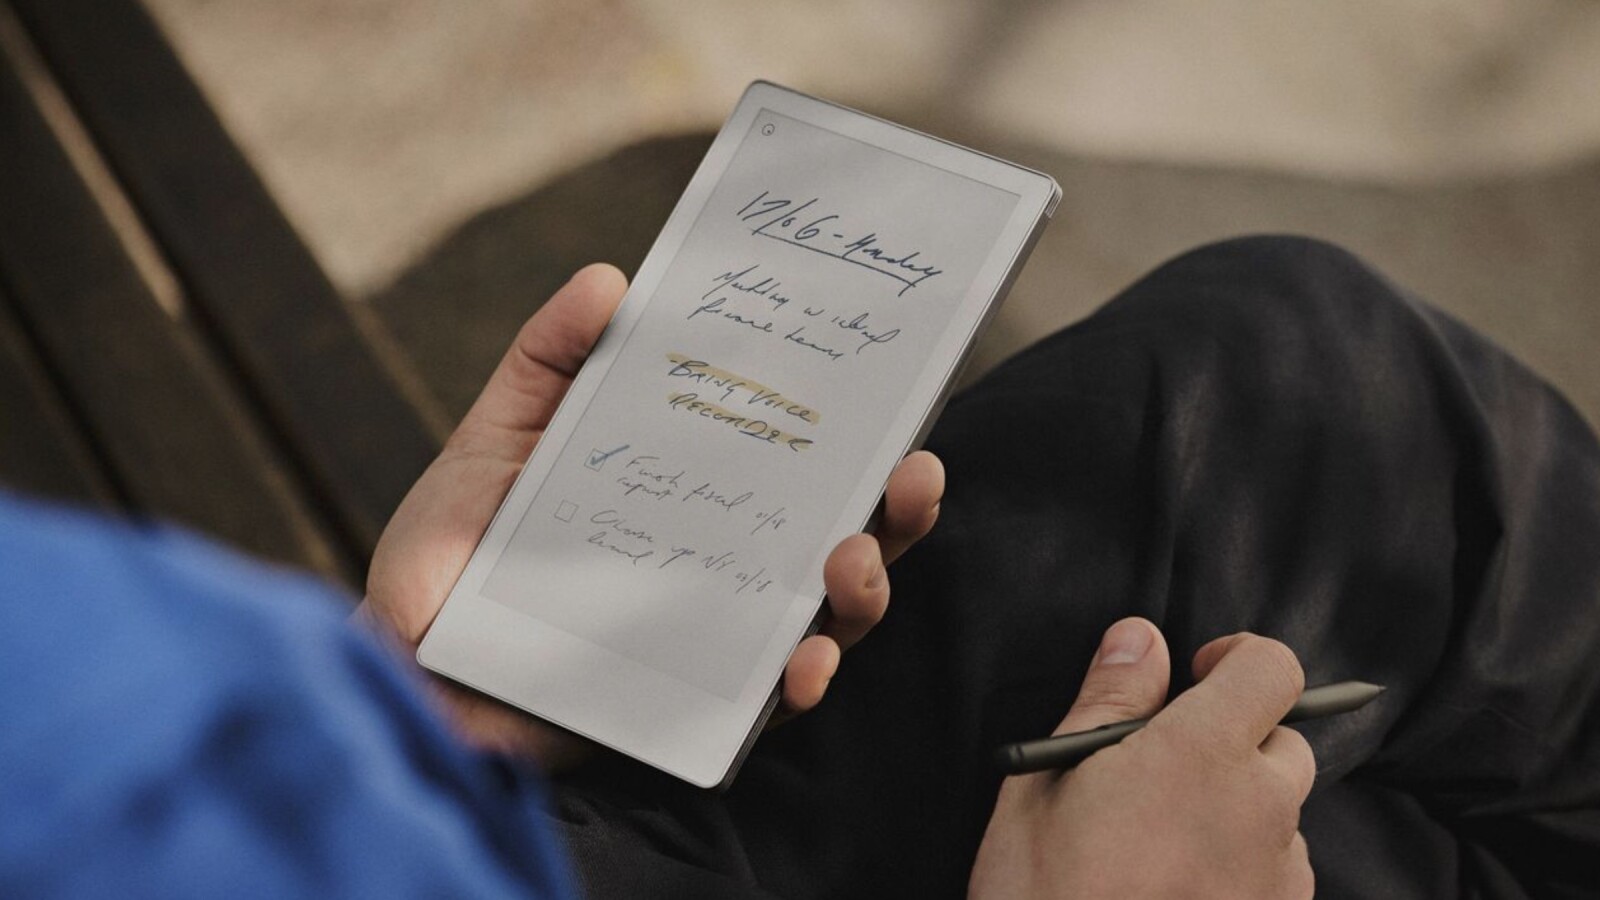 17/06 - Monday
Meeting w
finance team
- BRING VOICE
RECORDER
Finish fiscal 01/18
report
NY 02/18